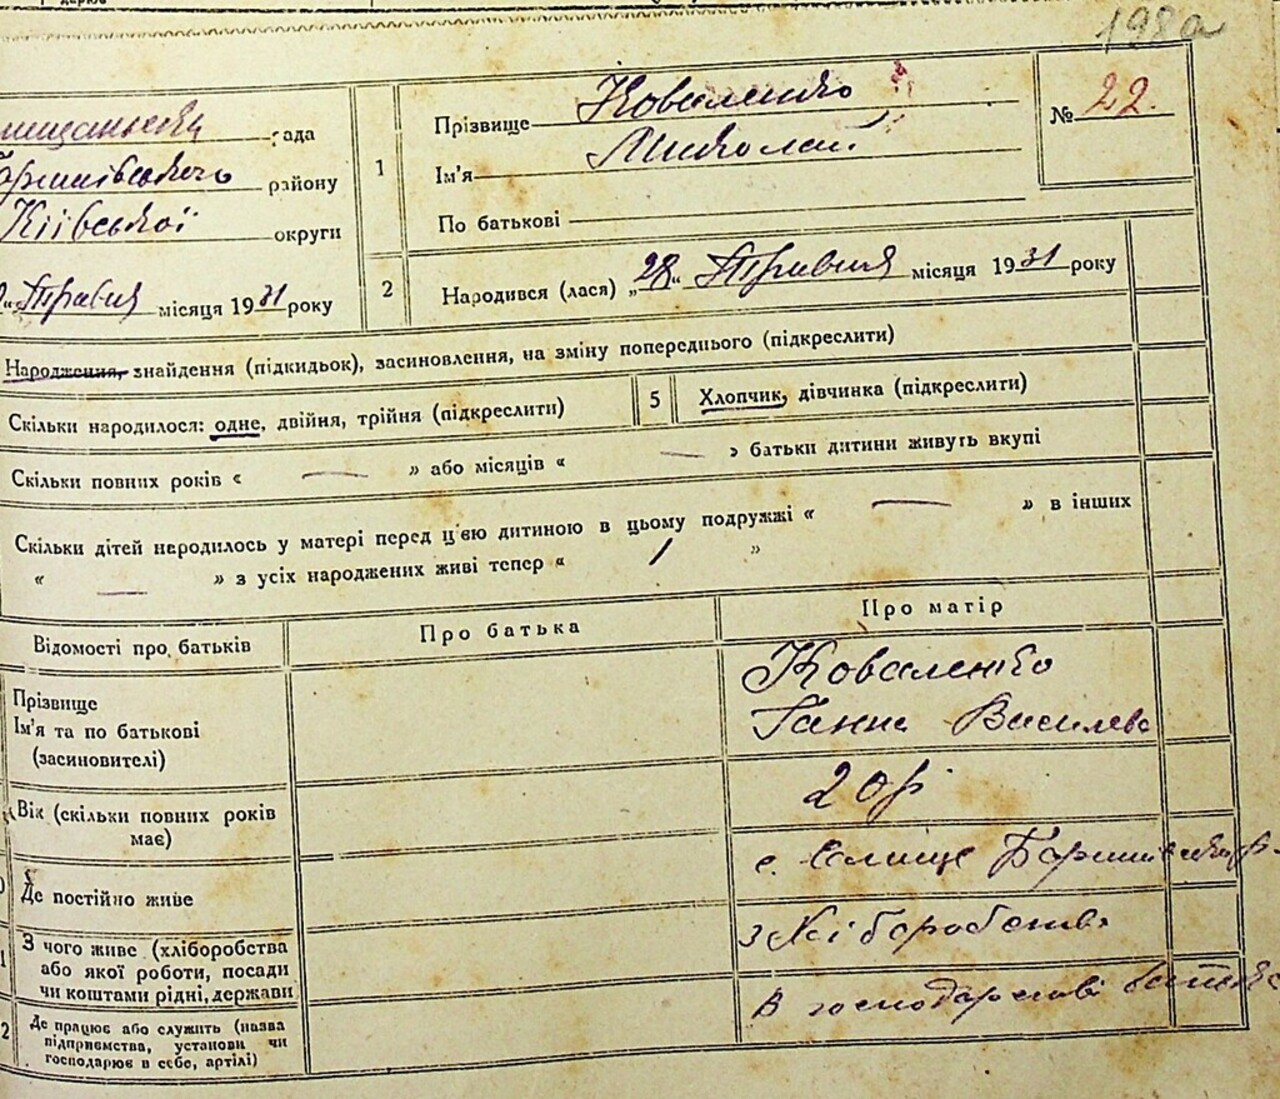 198а
Прізвище Коваленко
№ 22.
рада
Ім'я Миколай
Баришівського району
1
По батькові
Київської округи
2
Народився (лася) „28“ Травня місяця 1931 року
“ Травня місяця 1931 року
Народження, знайдення (підкидьок), засиновлення, на зміну попереднього (підкреслити)
Скільки народилося: одне, двійня, трійня (підкреслити)
5
Хлопчик, дівчинка (підкреслити)
Скільки повних років « — » або місяців « — » батьки дитини живуть вкупі
Скільки дітей народилось у матері перед ц'єю дитиною в цьому подружжі « — » в інших
« — » з усіх народжених живі тепер « 1 »
Відомості про батьків
Про батька
Про матір
Прізвище
Ім'я та по батькові
(засиновителі)
Коваленко
Ганна Василева
Вік (скільки повних років
має)
20 р
Де постійно живе
с. Селище Баришівськ р.
З чого живе (хліборобства
або якої роботи, посади
чи коштами рідні, держави
з хліборобства
2
Де працює або служить (назва
підприємства, установи чи
господарює в себе, артілі)
в господарстві батька